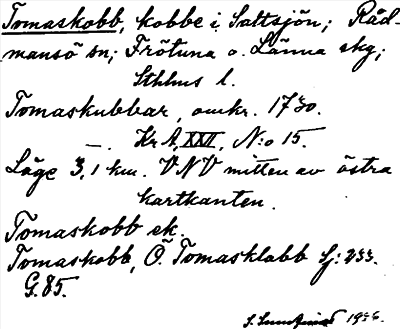 Tomaskobb, kobbe i Saltsjön; Råd-
mansö sn; Frötuna o. Länna skg;
Sthlms l.
Tomaskubbar, omkr. 1730.
—. Kr A, XXII, N:o 15.
Läge 3,1 km. VNV mitten av östra
kartkanten.
Tomaskobb ek.
Tomaskobb, Ö. Tomasklabb Sj: 233.
G. 85.
1936.